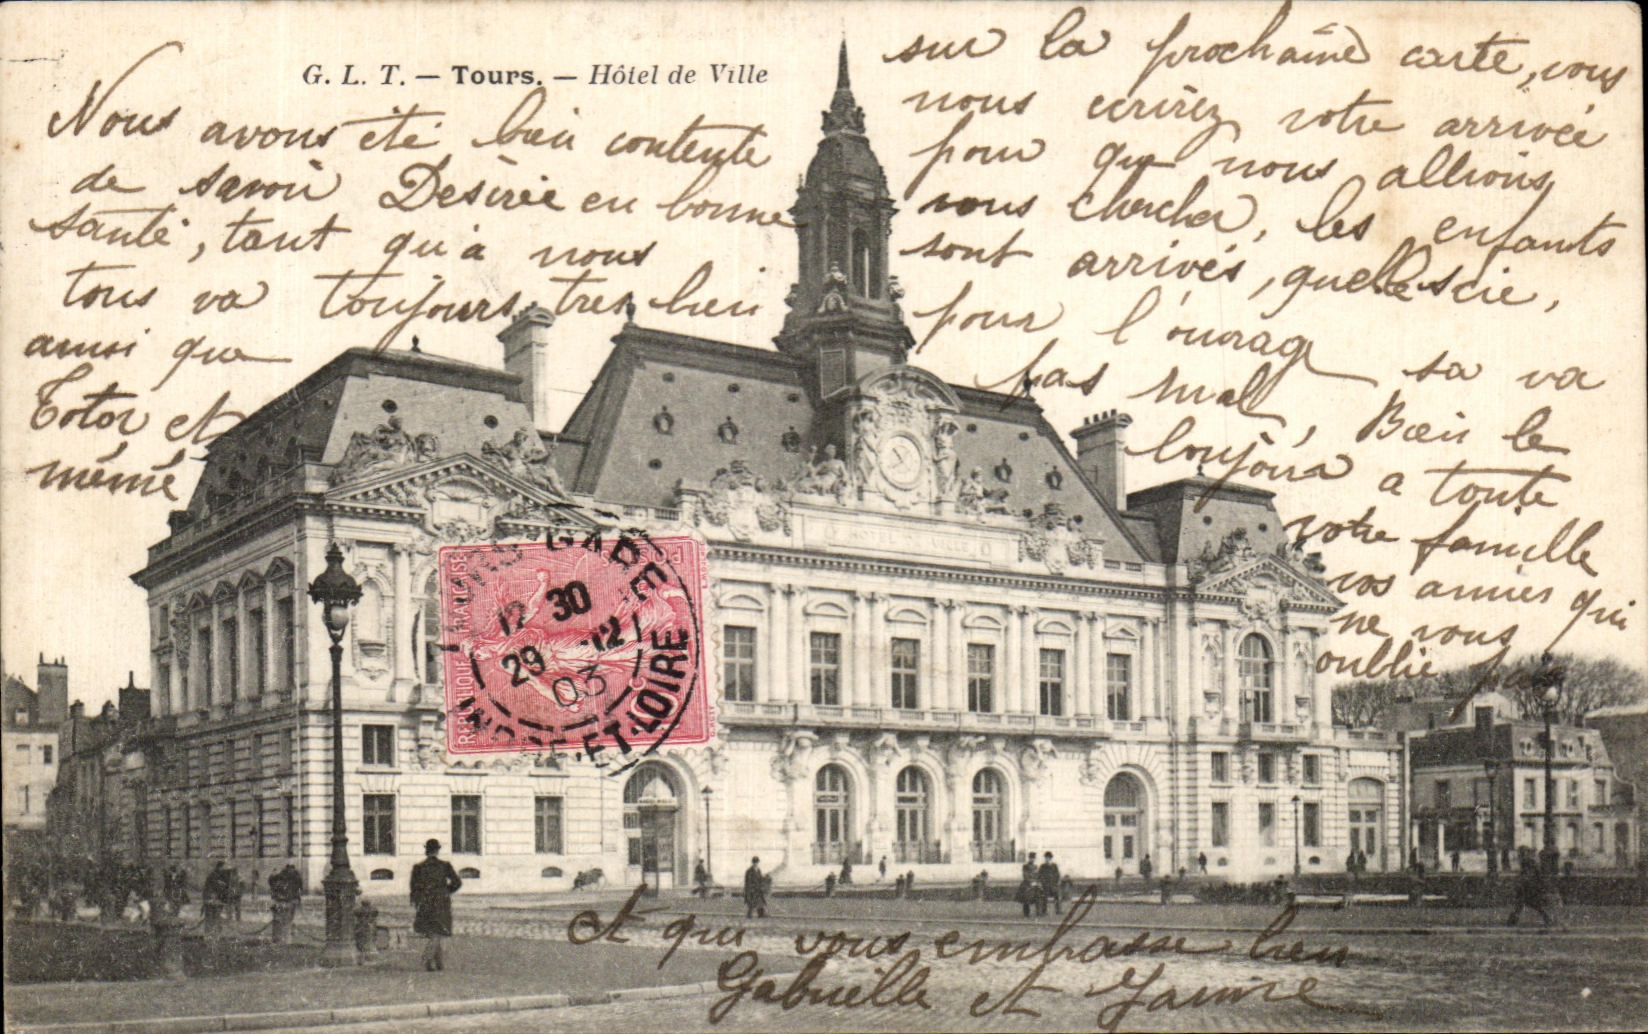 G. L. T. — Tours. — Hôtel de Ville
Nous avons été bien contente
de savoir Desirée en bonne
santé, tant qu'à nous
tous va toujours tres bien
ainsi que
Totor et
mémé
sur la prochaine carte, vous
nous ecrirez votre arrivée
pour que nous allions
vous chercher, les enfants
sont arrivés, quelle scie,
pour l'ouvrage sa va
pas mal, Bien le
toujours a toute
votre famille
vos amies qui
ne vous
oublie pas
Et qui vous embrasse bien
Gabrielle et Jeanne
HOTEL DE VILLE
REPUBLIQUE FRANÇAISE
POSTES
10
TOURS-GARE
12 30
29 -12
03
INDRE-ET-LOIRE